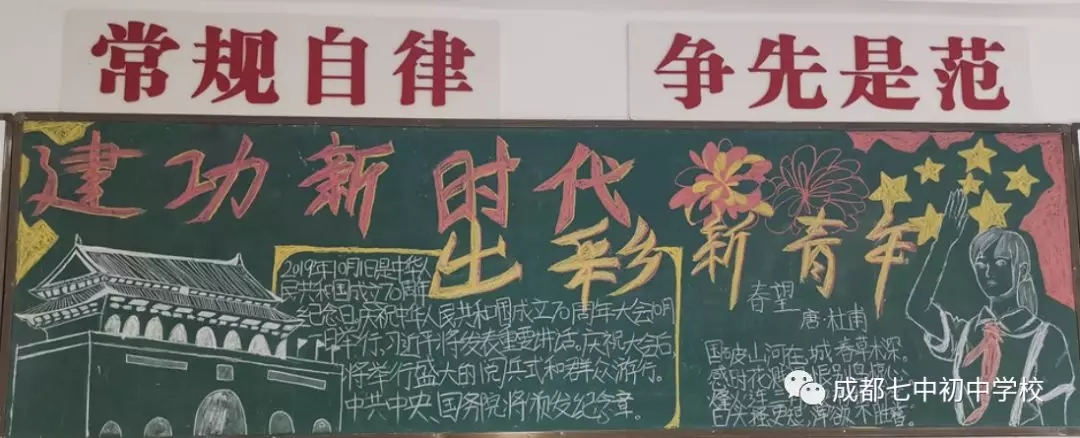 常规自律
争先是范
建功新时代
出彩新青年
2019年10月1日是中华人
民共和国成立70周年
纪念日,庆祝中华人民共和国成立70周年大会10月
1日举行,习近平将发表重要讲话,庆祝大会后
将举行盛大的阅兵式和群众游行。
中共中央、国务院将颁发纪念章。
春望
唐·杜甫
国破山河在,城春草木深。
感时花
烽火连
白头搔更短,浑欲不胜簪。
成都七中初中学校